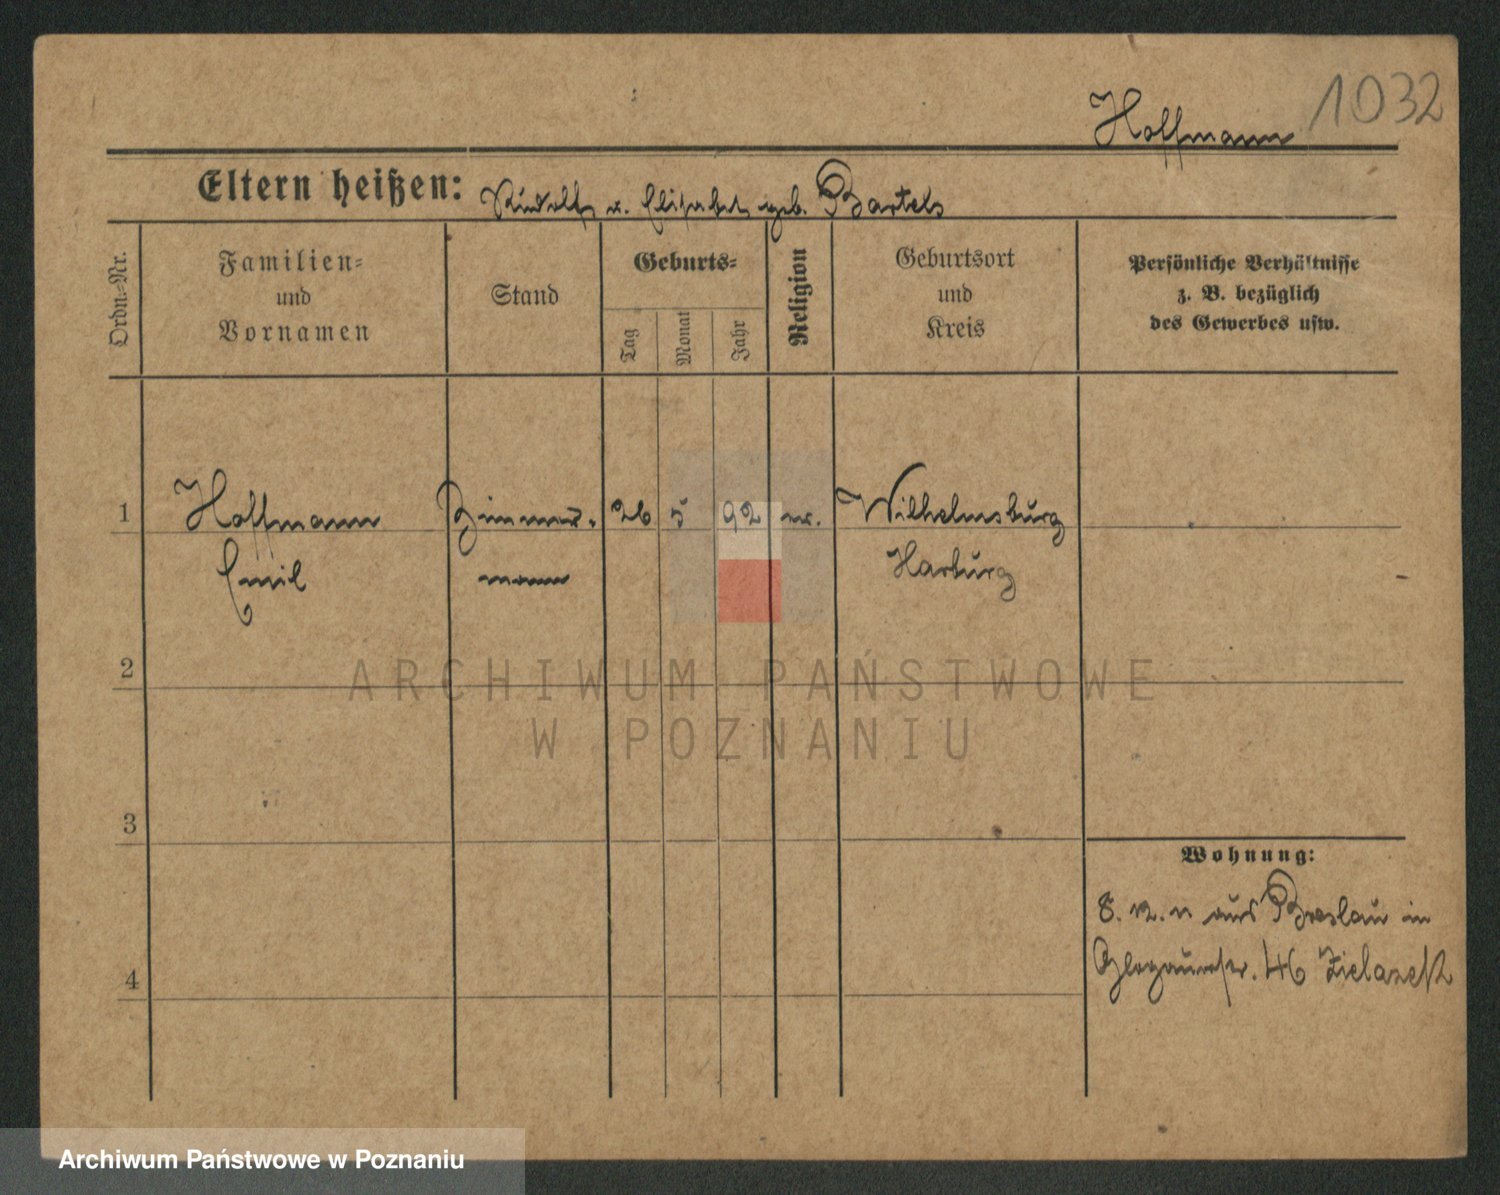 1032
Hoffmann
Eltern heißen: Rudolf u. Elisabet geb. Bartels
Ordn.-Nr.
Familien-
und
Vornamen
Stand
Geburts-
Tag
Monat
Jahr
Religion
Geburtsort
und
Kreis
Persönliche Verhältnisse
z. B. bezüglich
des Gewerbes usw.
1 Hoffmann Zimmer- 26 5 92 ev. Wilhelmsburg
Emil mann Harburg
2
ARCHIWUM PAŃSTWOWE
W POZNANIU
3
Wohnung:
8. 12. 11 aus Breslau in
4
Glogauerstr. 46
Archiwum Państwowe w Poznaniu